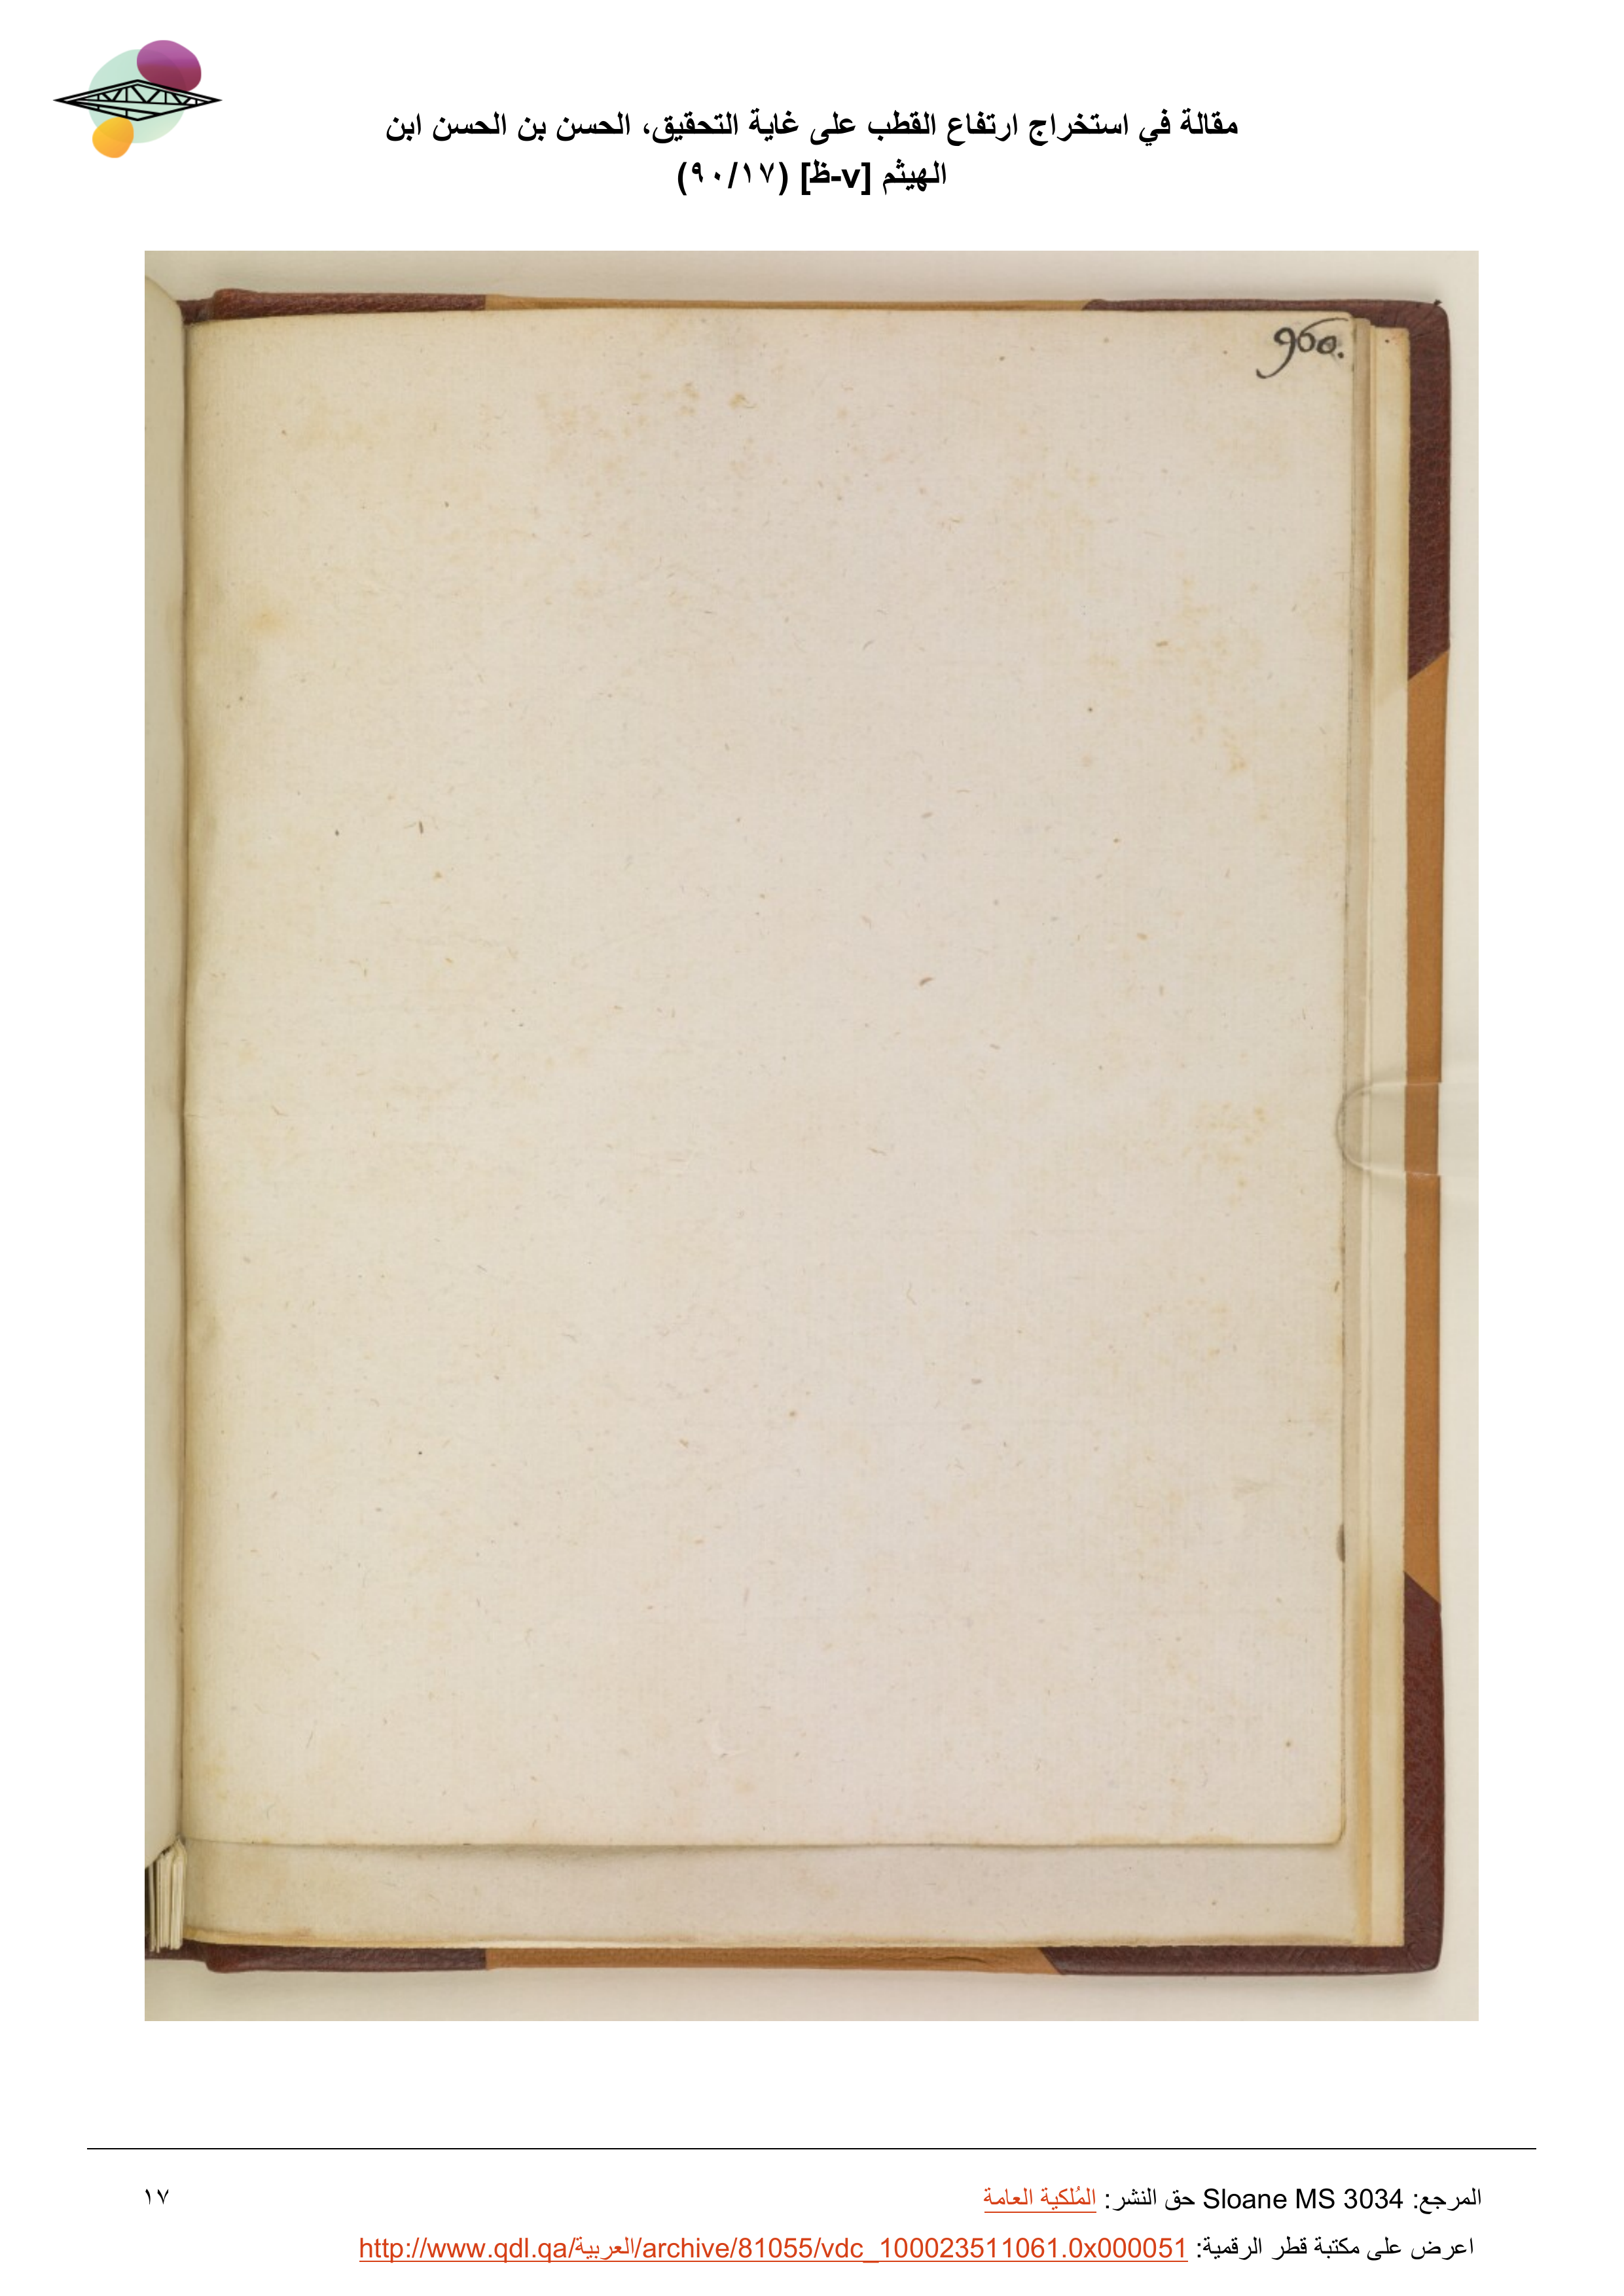 مقالة في استخراج ارتفاع القطب على غاية التحقيق، الحسن بن الحسن ابن
الهيثم [v-ظ] (٩٠/١٧)
960.
المرجع: Sloane MS 3034 حق النشر: المُلكية العامة
١٧
اعرض على مكتبة قطر الرقمية: http://www.qdl.qa/العربية/archive/81055/vdc_100023511061.0x000051